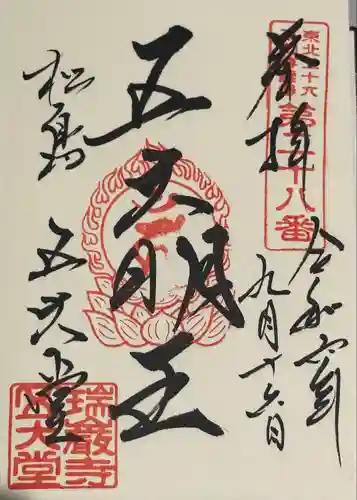 東北三十六
第二十八番
奉拝
令和
九月十六日
五大明王
松島
五大堂
瑞巌寺
五大堂